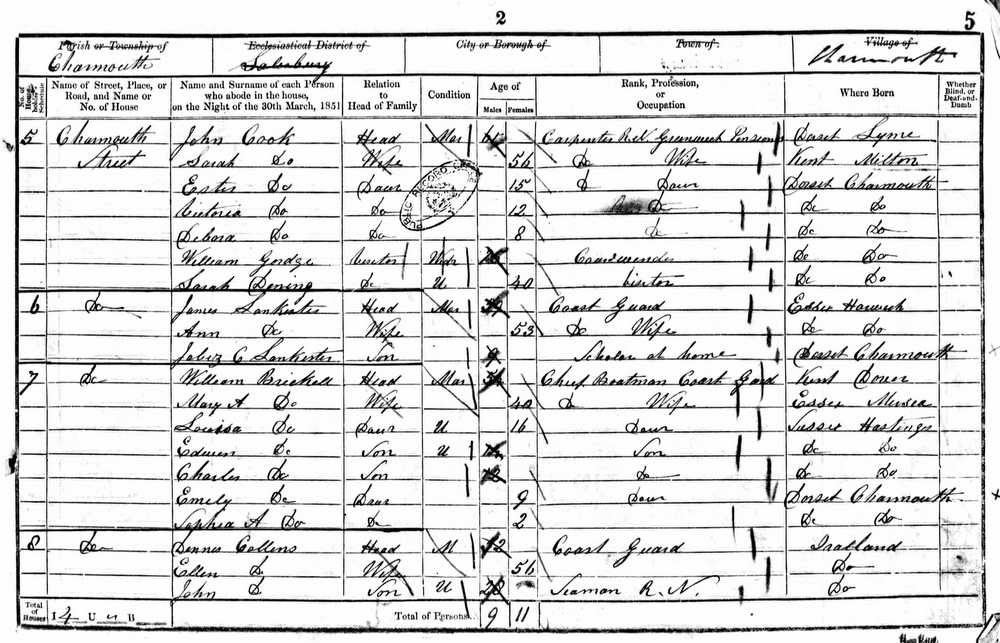 2
5
Parish or Township of
Charmouth
Ecclesiastical District of
Salisbury
City or Borough of
Town of
Village of
Charmouth
Name of Street, Place, or Road, and Name or No. of House
Name and Surname of each Person who abode in the house, on the Night of the 30th March, 1851
Relation to Head of Family
Condition
Age of
Males Females
Rank, Profession, or Occupation
Where Born
Whether Blind, or Deaf-and-Dumb
5 Charmouth John Cook Head Mar Carpenter R.N. Greenwich Pensioner Dorset Lyme
Street Sarah Do Wife 56 Do Wife Kent Milton
Ester Do Daur 15 D Daur Dorset Charmouth
Victoria Do Do 12 Do Do Do
Debora Do Do 8 Do Do Do
William Gordge Visitor Do Do
Sarah Dening Do U 40 Visitor Do Do
6 Do James Lankester Head Mar Coast Guard Essex Harwich
Ann Do Wife 53 Do Wife Do Do
Jabez C Lankester Son 9 Scholar at home Dorset Charmouth
7 Do William Brickell Head Mar Chief Boatman Coast Gard Kent Dover
Mary A Do Wife 40 D Wife Essex Mersea
Louisa Do Daur U 16 Daur Sussex Hastings
Edwin Do Son U Son Do Do
Charles Do Son 12 Do Do Do
Emely Do Daur 9 Daur Dorset Charmouth
Sophia A Do Do 2 Do Do
8 Do Dennis Collins Head M Coast Guard Iralland
Ellen D Wife 56 Do
John D Son U 20 Seaman R.N. Do
Total of Houses
I 4 U B
Total of Persons
9 11
PUBLIC RECORD OFFICE